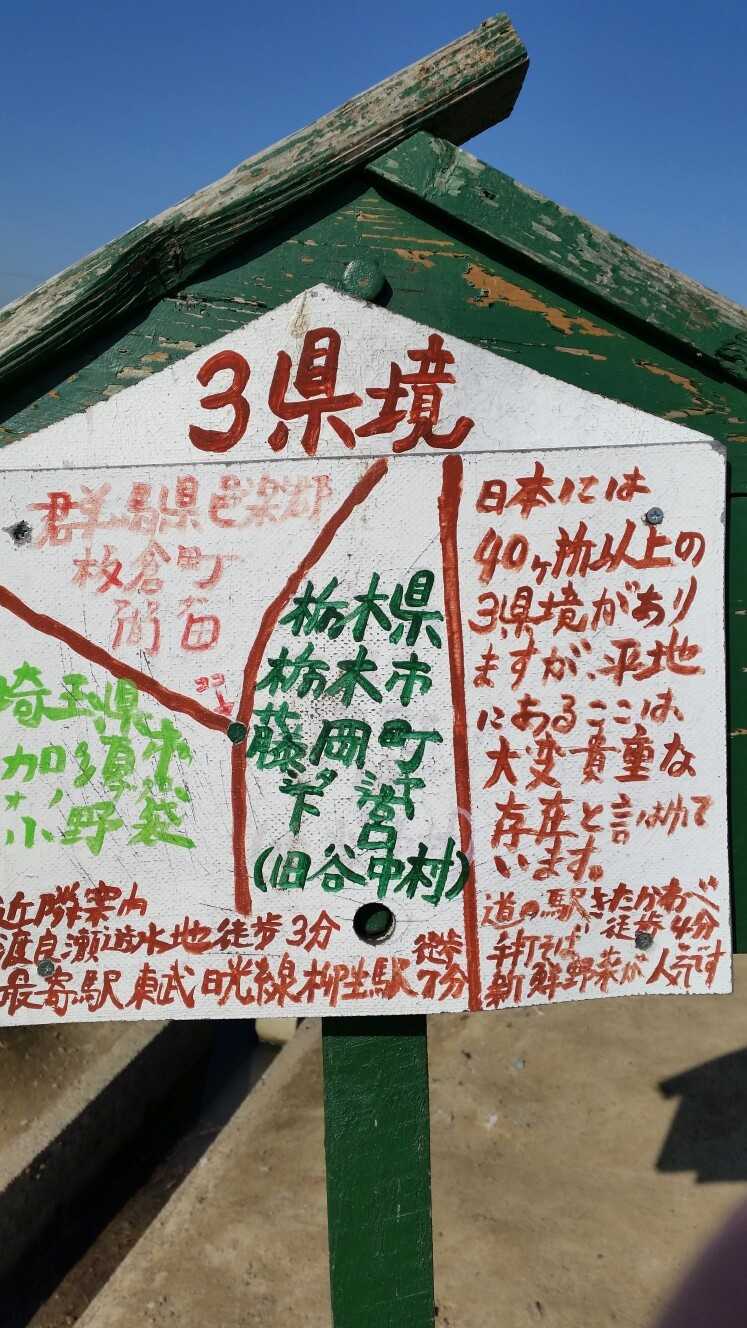 3県境
群馬県邑楽郡
板倉町
ココ
埼玉県
加須市
小野袋
栃木県
栃木市
藤岡町
下宮
シタ ミヤ
(旧谷中村)
日本には
40ヶ所以上の
3県境があり
ますが、平地
にあるここは、
大変貴重な
存在と言われて
います。
近隣案内
渡良瀬遊水地 徒歩3分
最寄駅 東武日光線柳生駅 徒歩7分
道の駅きたかわべ
徒歩4分
手打そば
新鮮野菜が人気です